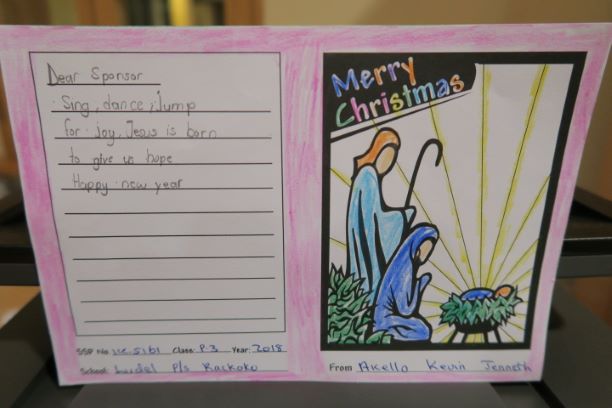 Dear Sponsor
Sing, dance, Jump
for joy, Jesus is born
to give us hope
Happy new year
SSP No. Class: P.3 Year: 2018
School: P/s Rackoko
Merry
Christmas
From Akello Kevin Jenneth